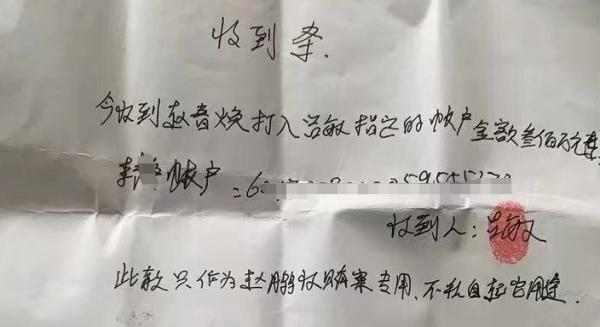 收到条.
今收到赵音焕打入吕敏指定的帐户金额叁佰万元整
李 帐户:6
收到人:吕敏
此款只作为赵鹏收贿案专用,不私自起它用途.